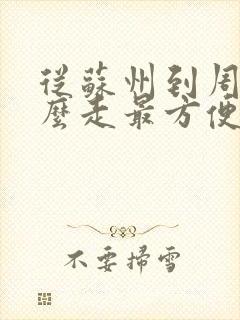 從蘇州到周
麼走最方便
不要掃雪